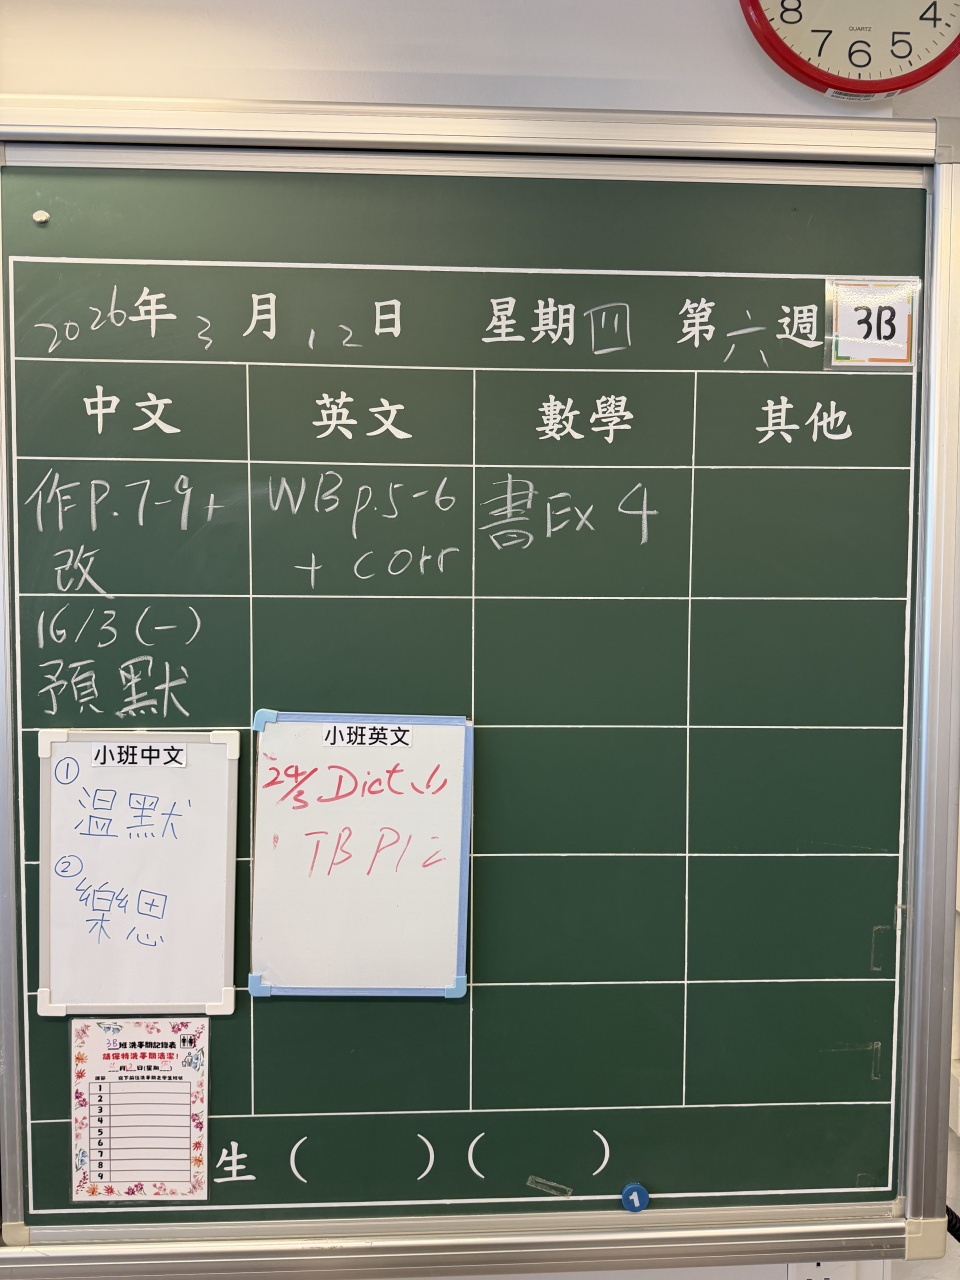 8 7 6 5 4
QUARTZ
2026年 3月 12日 星期四 第六週
3B
中文 英文 數學 其他
作P.7-9+
改
WB p.5-6
+ corr
書Ex 4
16/3 (一)
預默
小班中文
① 溫默
② 樂思
小班英文
24/3 Dict
TB P12
3B班洗手間記錄表
請保持洗手間清潔!
1
2
3
4
5
6
7
8
9
生 ( ) ( )
1